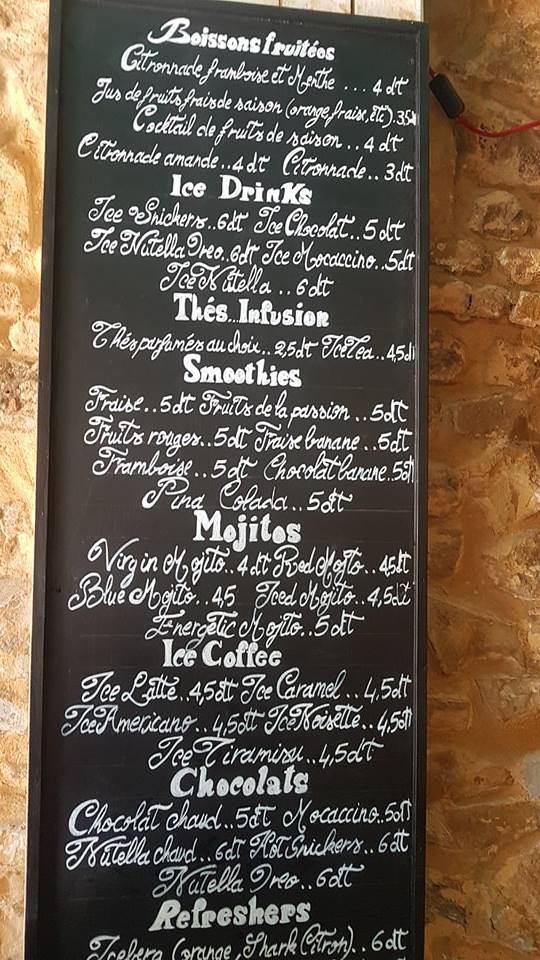 Boissons fruitées
Citronnade framboise et Menthe ... 4 dt
Jus de fruits frais de saison (orange, fraise, Etc).35
Cocktail de fruits de saison .. 4 dt
Citronnade amande..4 dt Citronnade.. 3dt
Ice Drinks
Ice Snickers..6dt Ice Chocolat..5 dt
Ice Nutella Oreo.6dt Ice Mocaccino..5dt
Ice Nutella .. 6 dt
Thés..Infusion
Thés parfumés au choix.. 2,5dt Ice Tea..4,5d
Smoothies
Fraise..5 dt Fruits de la passion ..5dt
Fruits rouges..5dt Fraise banane ..5dt
Framboise..5 dt Chocolat banane.5dt
Pina Colada..5dt
Mojitos
Virgin Mojito..4 dt Red Mojito..4,5dt
Blue Mojito..4,5 Iced Mojito..4,5dt
Energetic Mojito..5 dt
Ice Coffee
Ice Latte..4,5dt Ice Caramel .. 4,5dt
Ice Americano ..4,5dt Ice Noisette..4,5dt
Ice Tiramisu..4,5dt
Chocolats
Chocolat chaud..5dt Mocaccino.5dt
Nutella chaud ..6dt Hot Snickers..6 dt
Nutella Oreo ..6dt
Refreshers
Iceberg (orange, Shark Citron)..6 dt